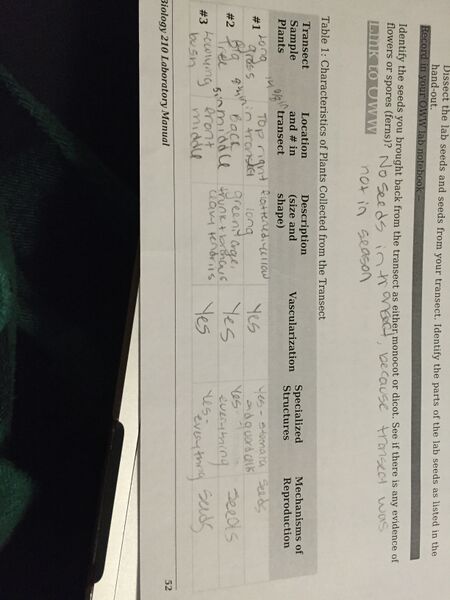 Dissect the lab seeds and seeds from your transect. Identify the parts of the lab seeds as listed in the
hand-out.
Record in your OWW lab notebook
Identify the seeds you brought back from the transect as either monocot or dicot. See if there is any evidence of
flowers or spores (ferns)? No seeds in transect, because transect was
not in season
Link to OWW
Table 1: Characteristics of Plants Collected from the Transect
Transect Sample Plants
Location and # in transect
Description (size and shape)
Vascularization
Specialized Structures
Mechanisms of Reproduction
#1 Long grass
Top right in transect
flowered yellow long
Yes
Yes - stomata and guard cells
Seeds
#2 Big tree
Back middle
green, large,
Yes
Yes - everything
Seeds
#3 Flowering bush
Front middle
Yes
Yes, everything
Seeds
Biology 210 Laboratory Manual
52